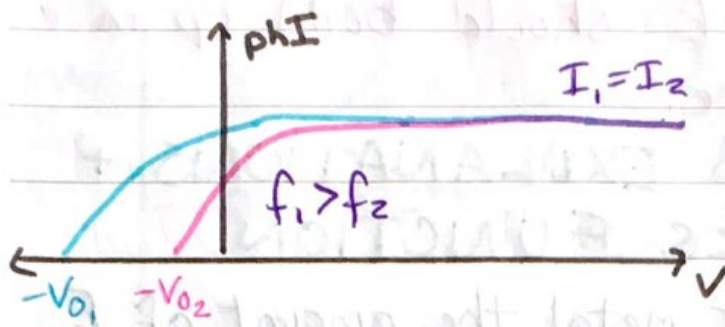 phI
I₁ = I₂
f₁ > f₂
-V₀₁
-V₀₂
V